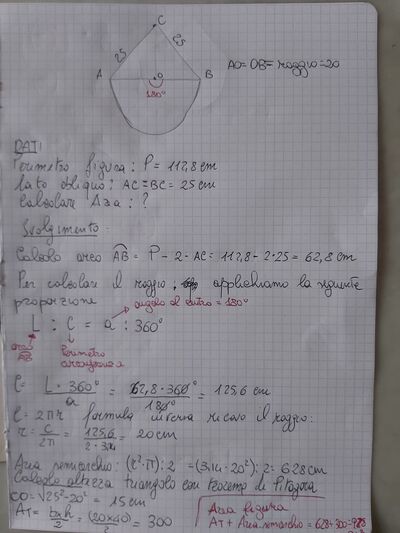 C
25
25
A
O
B
180°
AO=OB= raggio=20
DATI
Perimetro figura: P= 112,8 cm
lato obliquo: AC=BC= 25 cm
Calcolare Area: ?
Svolgimento
Calcolo arco AB = P - 2·AC= 112,8 - 2·25 = 62,8 cm
Per calcolare il raggio, applichiamo la seguente
proporzione
angolo al centro = 180°
L : C = α : 360°
arco AB
Perimetro
circonferenza
C= L·360°/α = 62,8·360°/180° = 125,6 cm
C= 2πr formula inversa ricavo il raggio:
r= C/2π = 125,6/2·3,14 = 20 cm
Area semicerchio: (r²·π):2 =(3,14·20²):2= 628 cm
Calcolo altezza triangolo con teorema di Pitagora
CO=√25²-20² = 15 cm
AT= bxh/2 = (20x40)/2 = 300
Area figura
AT + Area semicerchio = 628+300=928